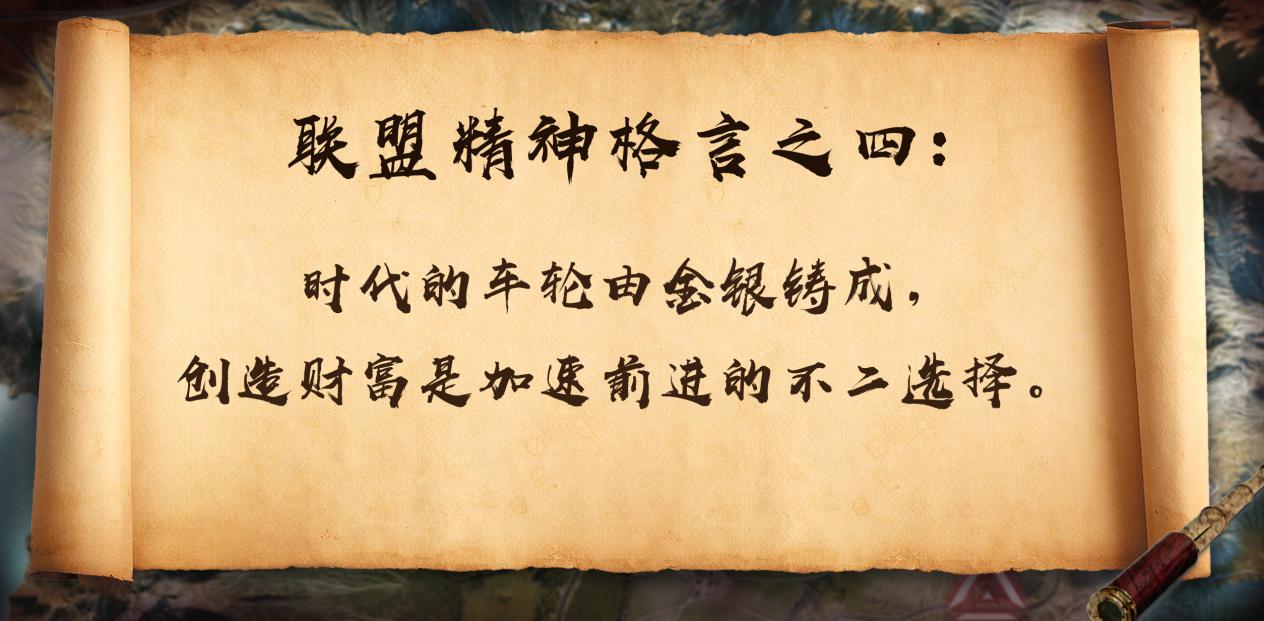 联盟精神格言之四：
时代的车轮由金银铸成，
创造财富是加速前进的不二选择。